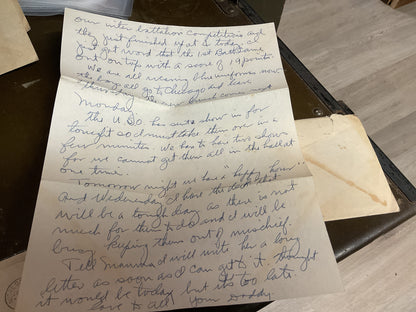 our inter battalion competition and
they just finished up at it today and
just got word that the 1st Battalion
out on top with a score of 19 points.
We are all wearing blue uniforms now
the go to Chicago and
Monday
the USO has sure show in for
tonight so I must take them over in a
few minutes. We has to has two shows
for we cannot get them all in the hall at
one time.
Tomorrow night we has a happy hour"
And Wednesday I have the duty. It
will be a tough day as there is not
much for them to do and I will be
busy keeping them out of mischief.
Tell Mamma I will write her a long
letter as soon as I can get to it. thought
it would be today but its too late.
Love to all your Daddy